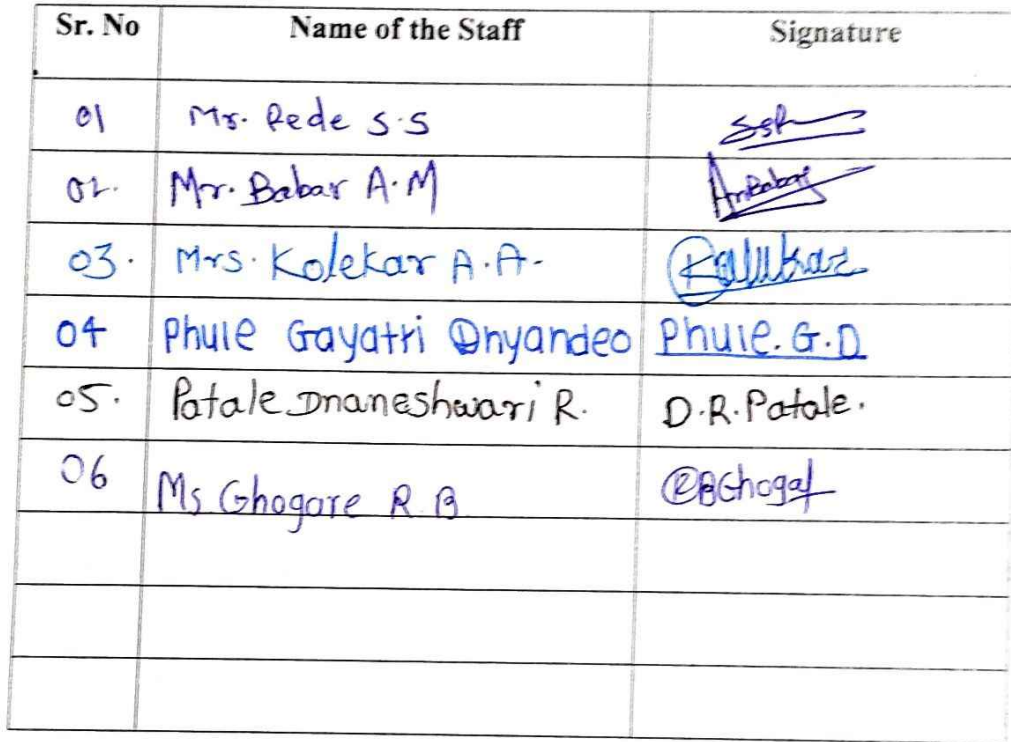 Sr. No Name of the Staff Signature
01 Mr. Pede S.S
02. Mr. Babar A.M AmBabar
03. Mrs. Kolekar A.A.
04 Phule Gayatri Dnyandeo Phule. G.D
05. Patale Dnaneshwari R. D.R.Patale.
06 Ms Ghogare R B